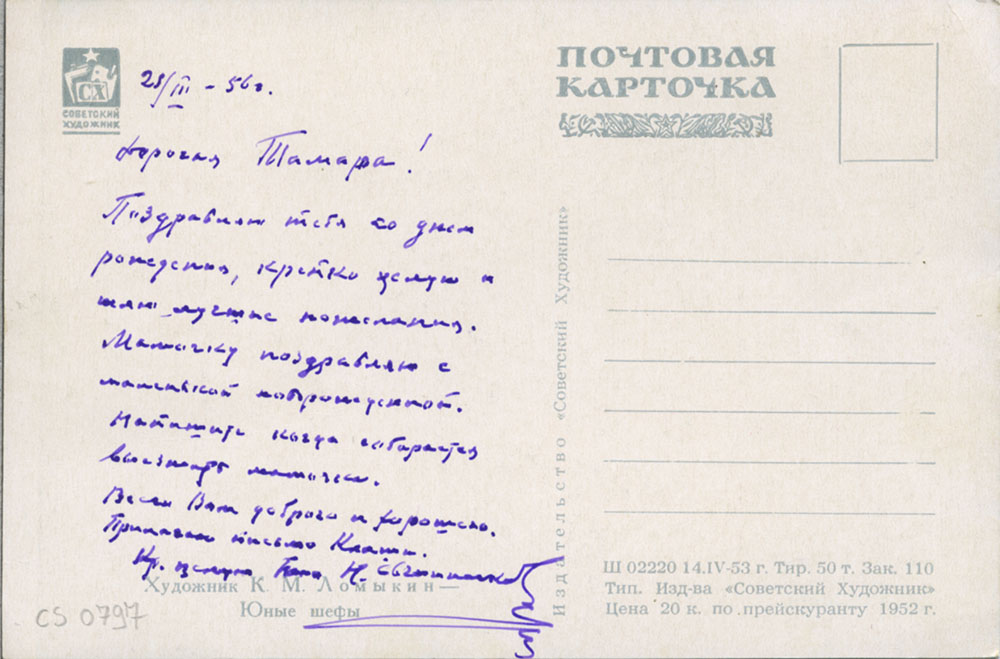 СХ
СОВЕТСКИЙ
ХУДОЖНИК
28/III - 56 г.
Дорогая Тамара!
Поздравляю тебя со днем
рождения, крепко целую и
шлю лучшие пожелания.
Мамочку поздравляю с
маленькой новорожденной.
Напишите когда собирается
выезжать мамочка.
Всего Вам доброго и хорошего.
письмо
Кр. целую
Художник К. М. Ломыкин—
Юные шефы
CS 0797
Издательство «Советский Художник»
ПОЧТОВАЯ
КАРТОЧКА
Ш 02220 14.IV-53 г. Тир. 50 т. Зак. 110
Тип. Изд-ва «Советский Художник»
Цена 20 к. по прейскуранту 1952 г.